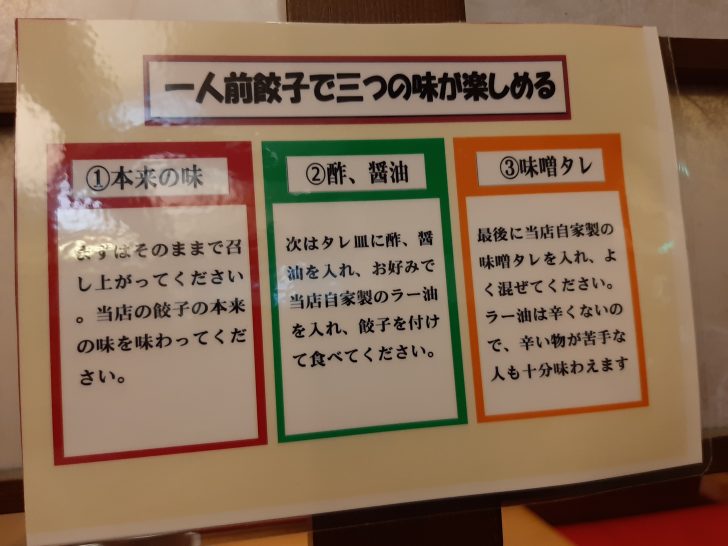 一人前餃子で三つの味が楽しめる
①本来の味
まずはそのままで召
し上がってください
。当店の餃子の本来
の味を味わってくだ
さい。
②酢、醤油
次はタレ皿に酢、醤
油を入れ、お好みで
当店自家製のラー油
を入れ、餃子を付け
て食べてください。
③味噌タレ
最後に当店自家製の
味噌タレを入れ、よ
く混ぜてください。
ラー油は辛くないの
で、辛い物が苦手な
人も十分味わえます